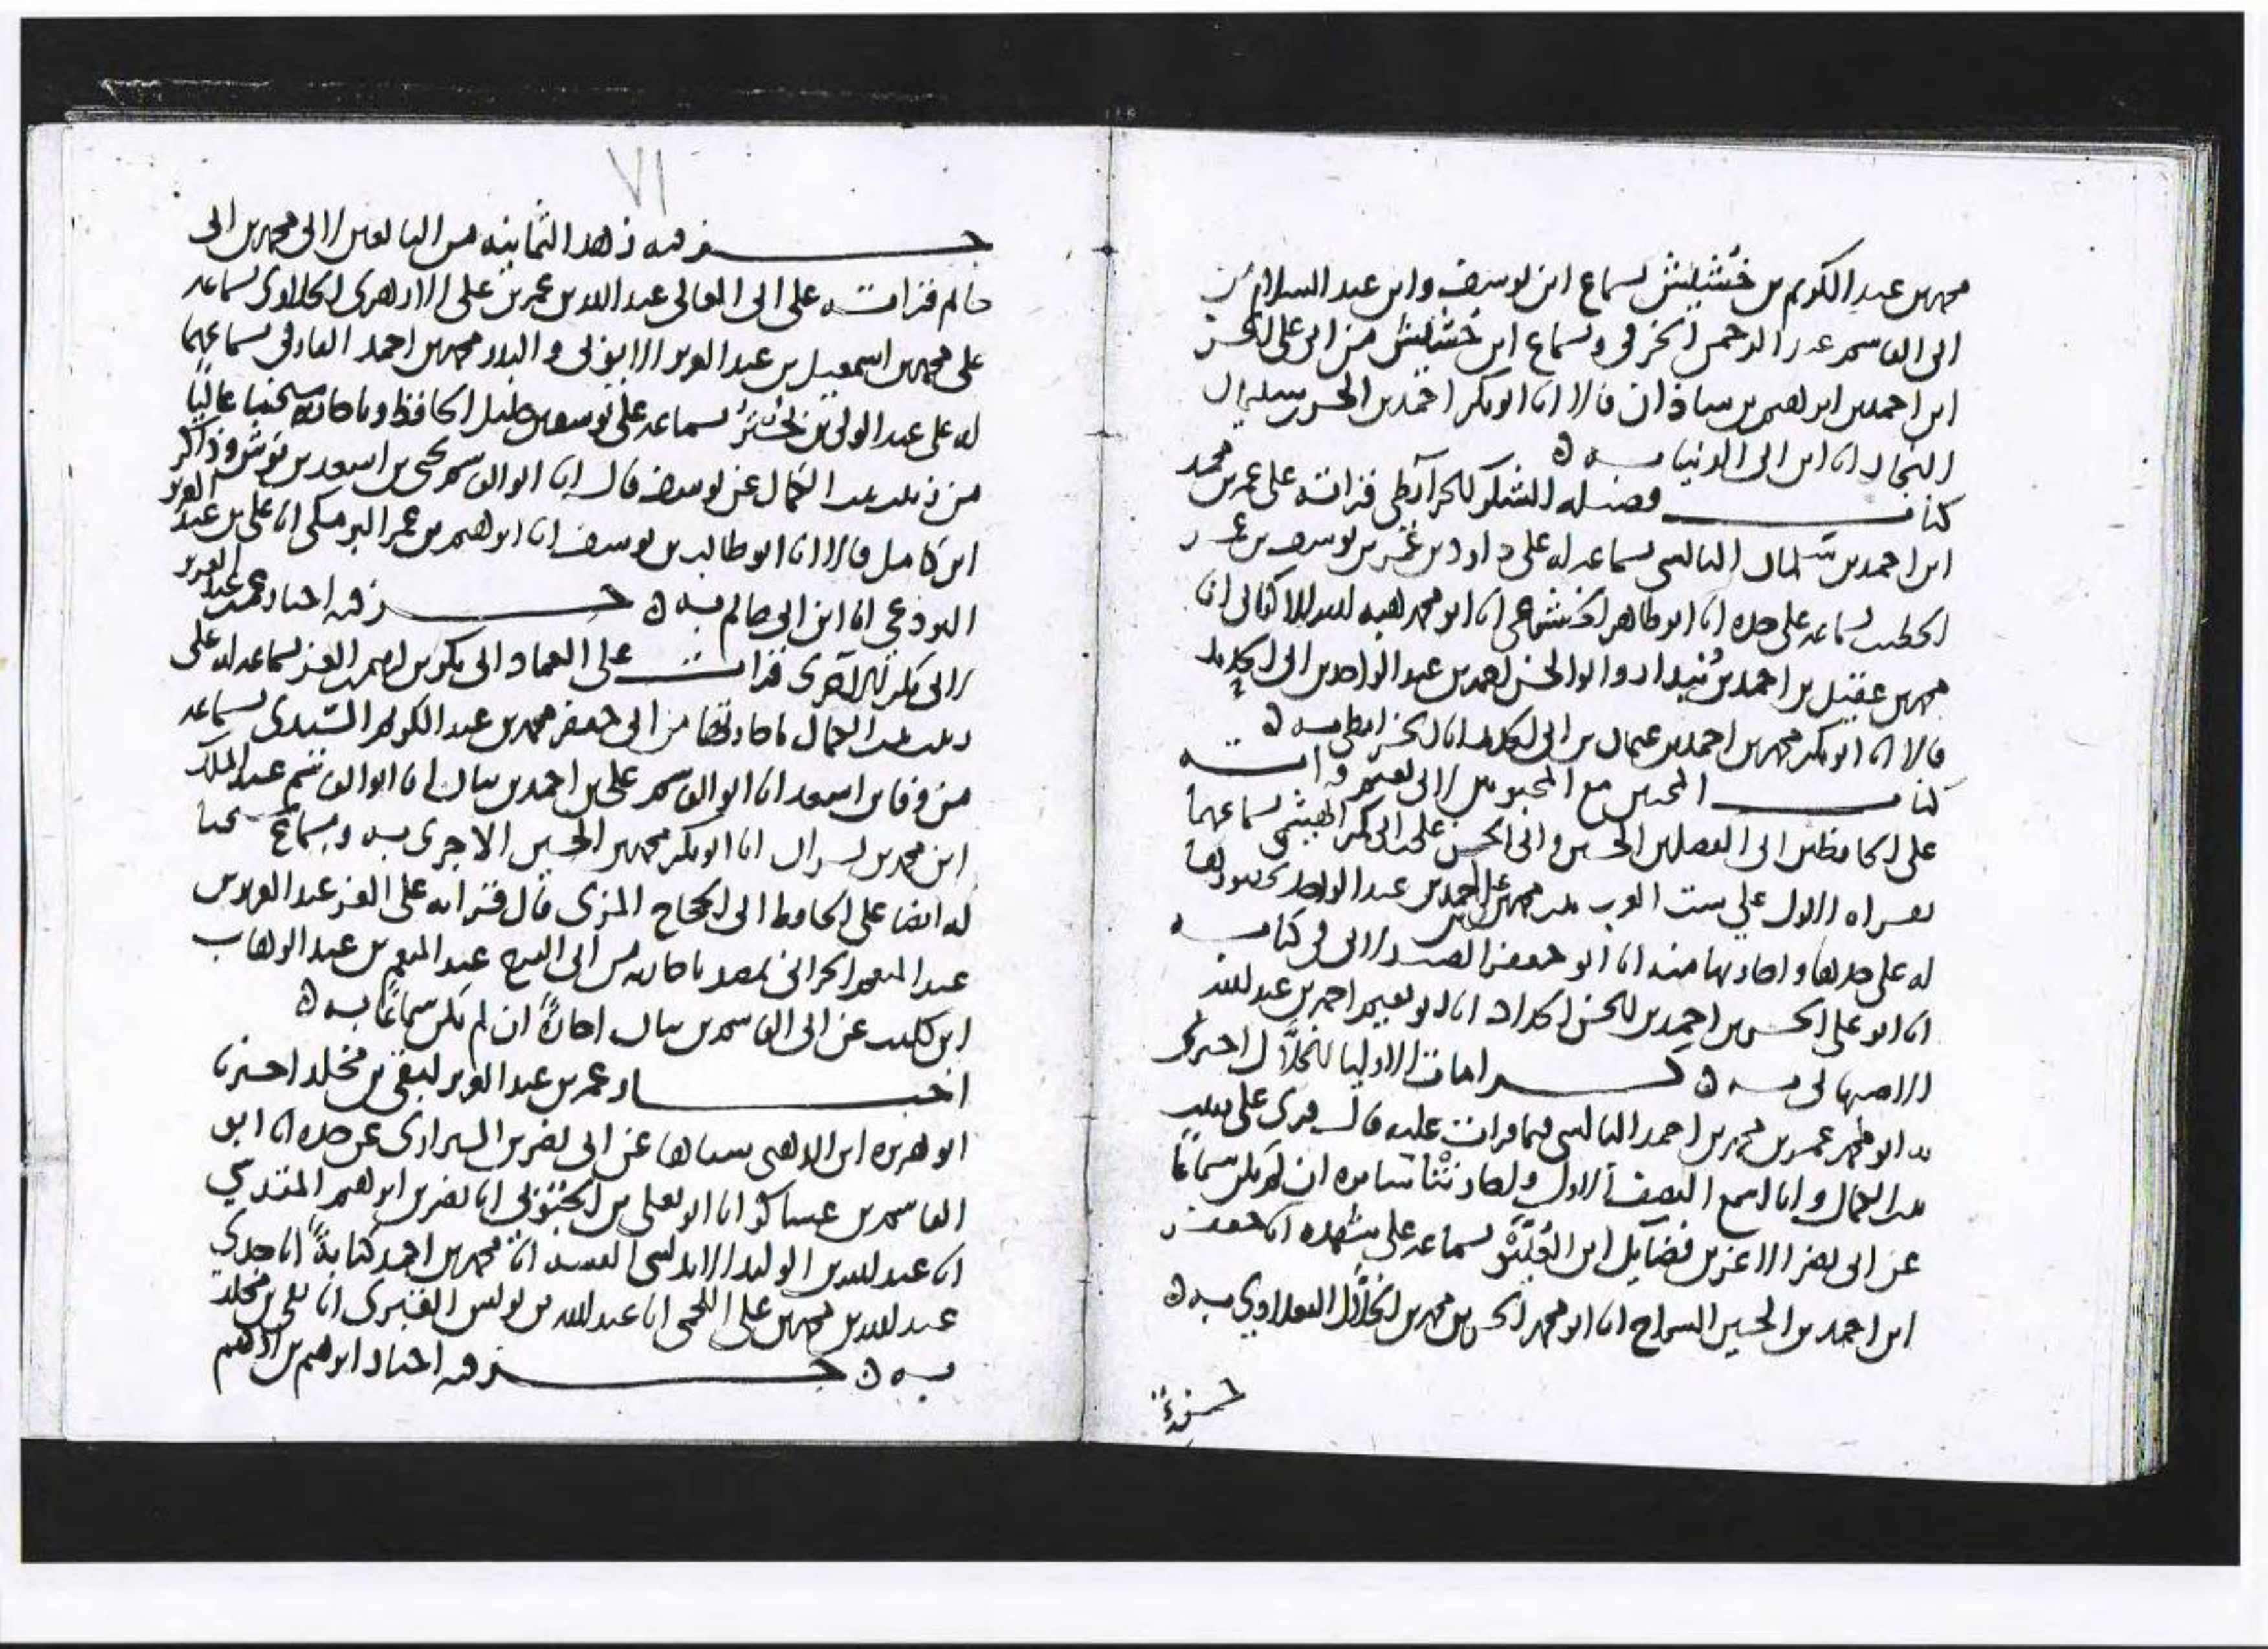 محمد بن عبد الكريم بن خُشَيش بسماع ابن يوسف وابن عبد السلام من
ابى القاسم عبد الرحمن الخرقى وبسماع ابن خُشَيش من ابى على الحسن
ابن احمد بن ابراهيم بن شاذان قالا انا ابو بكر احمد بن سليمان
النجاد انا ابن ابى الدنيا به ه
كتاب فضيلة الشكر للخرآئطى قراته على عمر بن محمد
ابن احمد بن سلمان البالسى بسماعه له على داود بن يوسف بن عمر
الخطيب بسماعه على جده انا ابو طاهر الخشوعى انا ابو محمد هبة الله الاكفانى انا
محمد بن عقيل بن احمد بن بُندار وابو الحسن احمد بن عبد الواحد بن ابى الحديد
قالا انا ابو بكر محمد بن احمد بن عثمان بن ابى الحديد انا الخرايطى به ه
كتاب المحبين مع المحبوبين لابى نعيم قراته
على الحافظين ابى الفضل بن الحسين وابى الحسن على ابى بكر الهيثمى بسماعهما
بقراة الاول على ست العرب بنت محمد بن على بن احمد بن عبد الواحد بحضورها
له على جدها واجازتها منه انا ابو جعفر الصيدلانى فى كتابه
انا ابو على الحسن بن احمد بن الحسن الحداد انا ابو نعيم احمد بن عبد الله
الاصبهانى به ه كرامات الاوليا للخلَّال اخبرنى
به ابو محمد عمر بن محمد بن احمد البالسى فيما قرات عليه قال قرى على زينب
بنت الكمال وانا اسمع النصف الاول واجازتنا سايره ان لم يكن سماعًا
عن ابى نصر الاعز بن فضايل ابن العُلَّيْق بسماعه على شهده انا جعفر
ابن احمد بن الحسين السراج انا ابو محمد الحسن بن محمد بن الخلَّال البغدادى به ه
جزءٌ
٧١
جزء فيه زهد الثمانيه من التابعين لابى محمد بن ابى
حاتم قراته على ابى المعالى عبد الله بن عمر بن على الازهرى الحلاوى بسماعه
على محمد بن اسمعيل بن عبد العزيز الايوبى والبدر محمد بن احمد الفارقى بسماعهما
له على عبد الولى بن بسماعه على يوسف بن خليل الحافظ وباجازة شيخنا عاليًا
من زينب بنت الكمال عن يوسف قال انا ابو القاسم يحيى بن اسعد بن بوش وذاكر
ابن كامل قالا انا ابو طالب بن يوسف انا ابراهيم بن عمر البرمكى انا على بن عبد العزيز
البردعى انا ابن ابى حاتم به ه جزء فيه اخبار عمر بن عبد العزيز
لابى بكر الآجرى قرات على العماد ابى بكر بن ابراهيم بن العز بسماعه له على
زينب بنت الكمال باجازتها من ابى جعفر محمد بن عبد الكريم السَّيدى بسماعه
من وفا بن اسعد انا ابو القاسم على بن احمد بن بيان انا ابو القاسم عبد الملك
ابن محمد بن بشران انا ابو بكر محمد بن الحسين الاجرى به وبسماع شيخنا
له ايضا على الحافظ ابى الحجاج المزى قال قراته على العز عبد العزيز بن
عبد المنعم الحرانى بمصر باجازته من ابى الفرج عبد المنعم بن عبد الوهاب
ابن كليب عن ابى القاسم بن بيان اجازةً ان لم يكن سماعًا به ه
اخبار عمر بن عبد العزيز لبقى بن مخلد اخبرنا
ابو هريره ابن الذهبى عن ابى نصر بن الشيرازى عن جده انا ابو
القاسم بن عساكر انا ابو يعلى بن الحبوبى انا نصر بن ابراهيم المقدسى
انا عبد الله بن الوليد الاندلسى انا محمد بن احمد كتابةً انا جدى
عبد الله بن محمد بن على اللخمى انا عبد الله بن يونس القبرى انا بقى بن مخلد
به ه جزء فيه اخبار ابراهيم بن ادهم